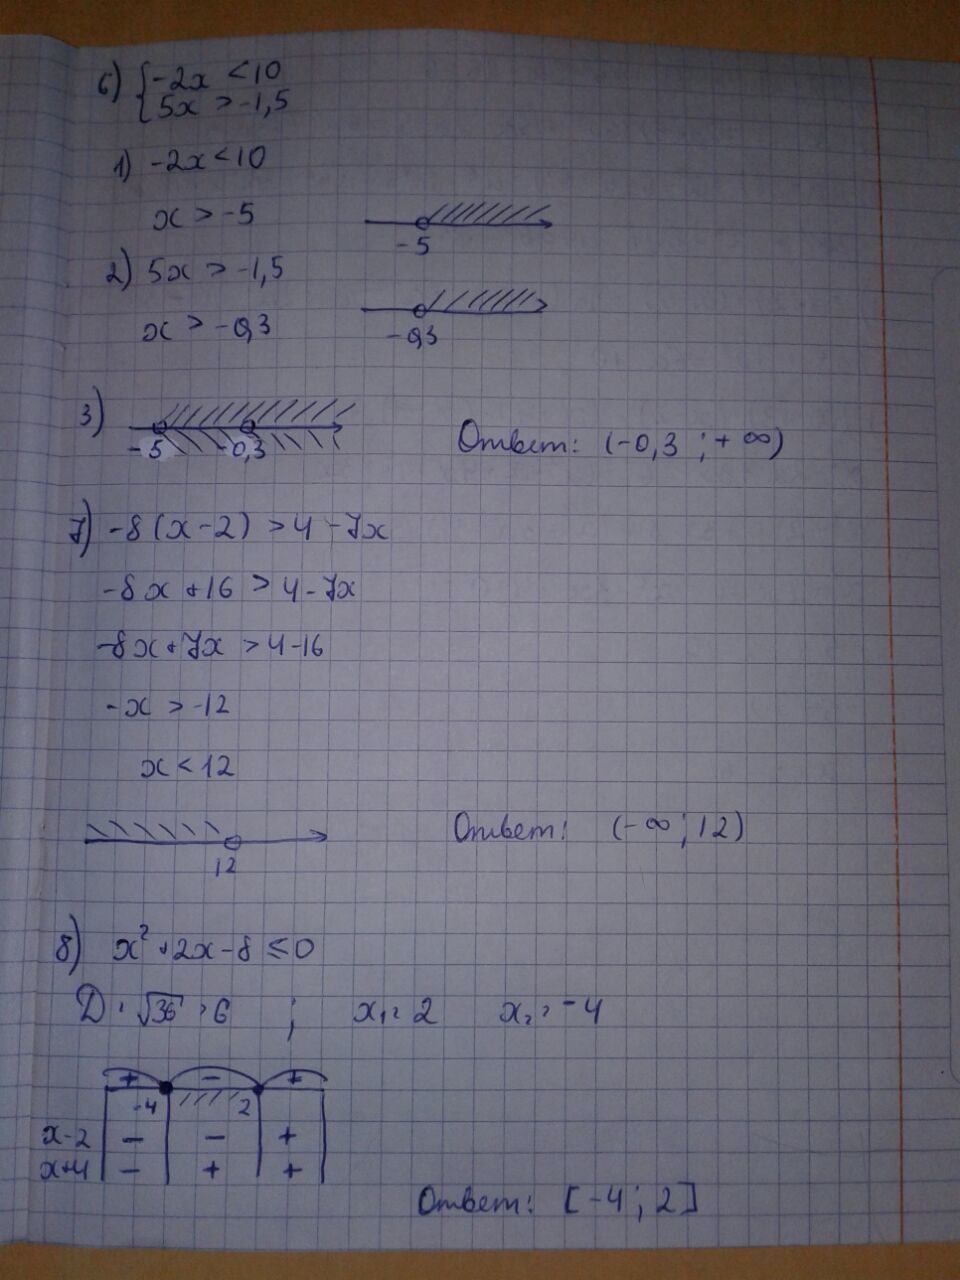 6) { -2x < 10
5x > -1,5
1) -2x < 10
x > -5
-5
2) 5x > -1,5
x > -0,3
-0,3
3)
-5 -0,3
Ответ: (-0,3 ; +∞)
7) -8(x-2) > 4 - 7x
-8x + 16 > 4 - 7x
-8x + 7x > 4 - 16
-x > -12
x < 12
12
Ответ: (-∞ ; 12)
8) x² + 2x - 8 ≤ 0
D = √36 = 6 ; x₁ = 2 x₂ = -4
+ - +
-4 2
x-2 - - +
x+4 - + +
Ответ: [-4 ; 2]